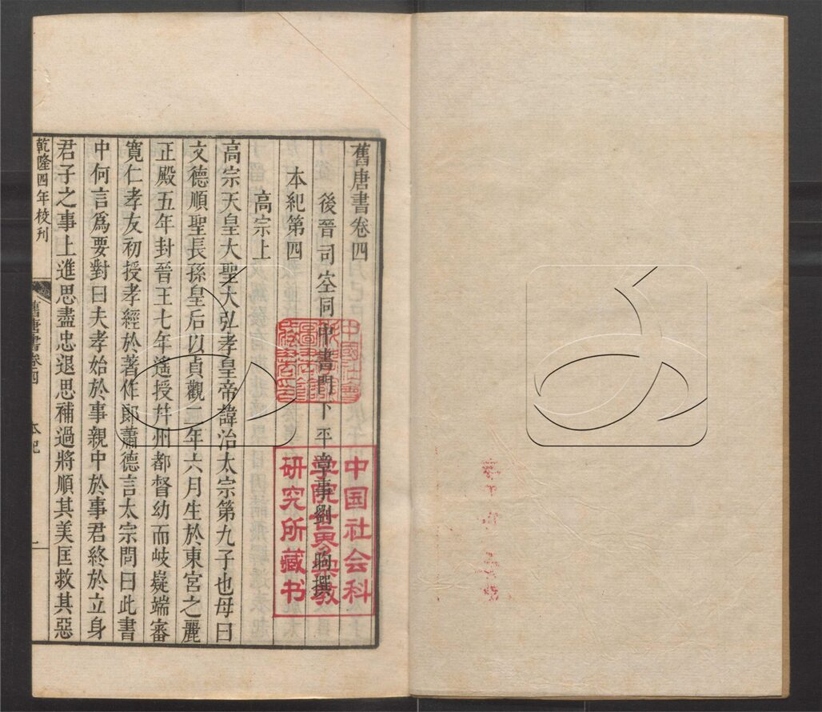 舊唐書卷四
後晉司空同中書門下平章事劉昫撰
本紀第四
高宗上
高宗天皇大聖大弘孝皇帝諱治太宗第九子也母曰
文德順聖長孫皇后以貞觀二年六月生於東宮之麗
正殿五年封晉王七年遙授幷州都督幼而岐嶷端審
寬仁孝友初授孝經於著作郎蕭德言太宗問曰此書
中何言爲要對曰夫孝始於事親中於事君終於立身
君子之事上進思盡忠退思補過將順其美匡救其惡
乾隆四年校刊
舊唐書卷四 本紀 一
中国社会科
学院世界宗教
研究所藏书